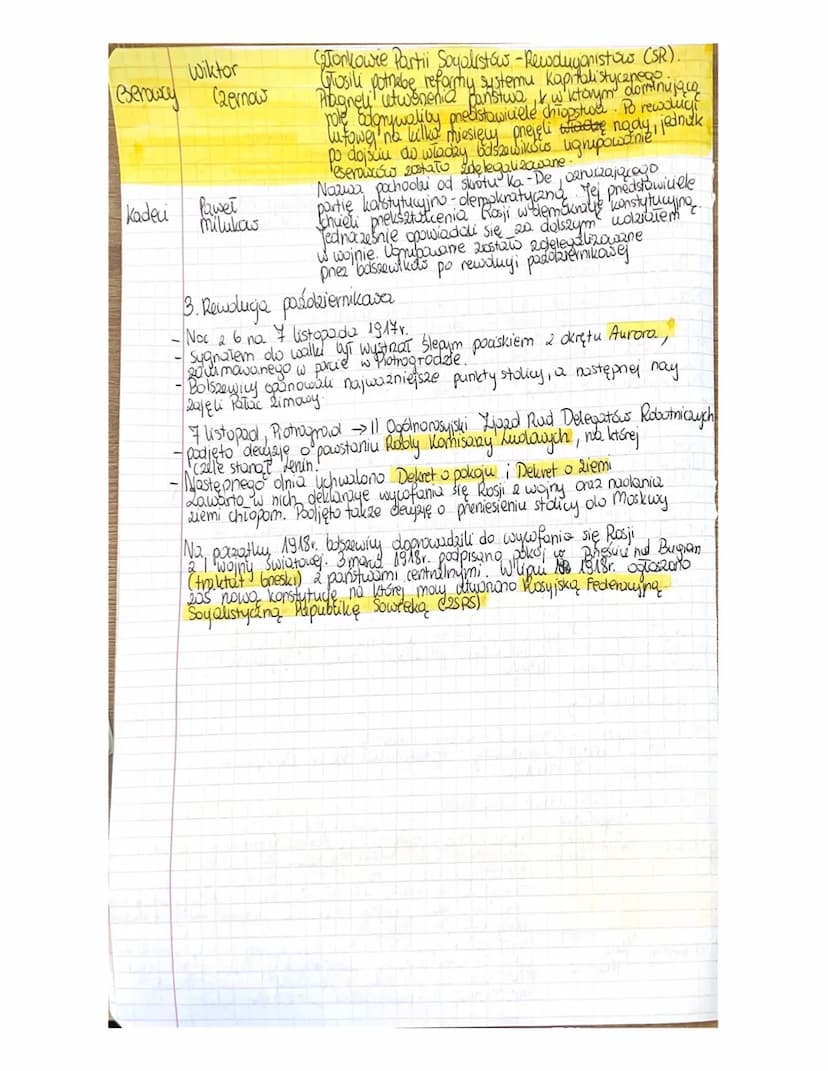 Eserowcy Wiktor Czernow
Członkowie Partii Socjalistów - Rewolucjonistów (SR).
Głosili potrzebę reformy systemu kapitalistycznego.
Pragnęli utworzenia państwa, w którym dominującą
rolę odgrywaliby przedstawiciele chłopstwa. Po rewolucji
lutowej na kilka miesięcy przejęli władzę rządy, jednak
po dojściu do władzy bolszewików ugrupowanie
eserowców zostało zdelegalizowane.
Kadeci Paweł Milukow
Nazwa pochodzi od skrótu Ka-De, oznaczającego
partię konstytucyjno-demokratyczną. Jej przedstawiciele
chcieli przekształcenia Rosji w demokrację konstytucyjną.
Jednocześnie opowiadali się za dalszym udziałem
w wojnie. Ugrupowane zostało zdelegalizowane
przez bolszewików po rewolucji październikowej
3. Rewolucja październikowa
- Noc z 6 na 7 listopada 1917r.
- Sygnałem do walki był wystrzał ślepym pociskiem z okrętu Aurora,
zacumowanego w porcie w Piotrogrodzie.
- Bolszewicy opanowali najważniejsze punkty stolicy, a następnej nocy
zajęli Pałac Zimowy.
7 listopad, Piotrogrod → II Ogólnorosyjski Zjazd Rad Delegatów Robotniczych
- podjęto decyzję o powstaniu Rady Komisarzy Ludowych, na której
czele stanął Lenin.
- Następnego dnia uchwalono Dekret o pokoju i Dekret o ziemi
zawarto w nich deklaracje wycofania się Rosji z wojny oraz nadania
ziemi chłopom. Podjęto także decyzję o przeniesieniu stolicy do Moskwy
Na początku 1918r. bolszewicy doprowadzili do wycofania się Rosji
z I wojny światowej. 3 marca 1918r. podpisano pokój w Brześciu nad Bugiem
(traktat brzeski) z państwami centralnymi. W lipcu 1918r. ogłoszono
zaś nową konstytucję na której mocy utworzono Rosyjską Federacyjną
Socjalistyczną Republikę Sowiecką (ZSRS)